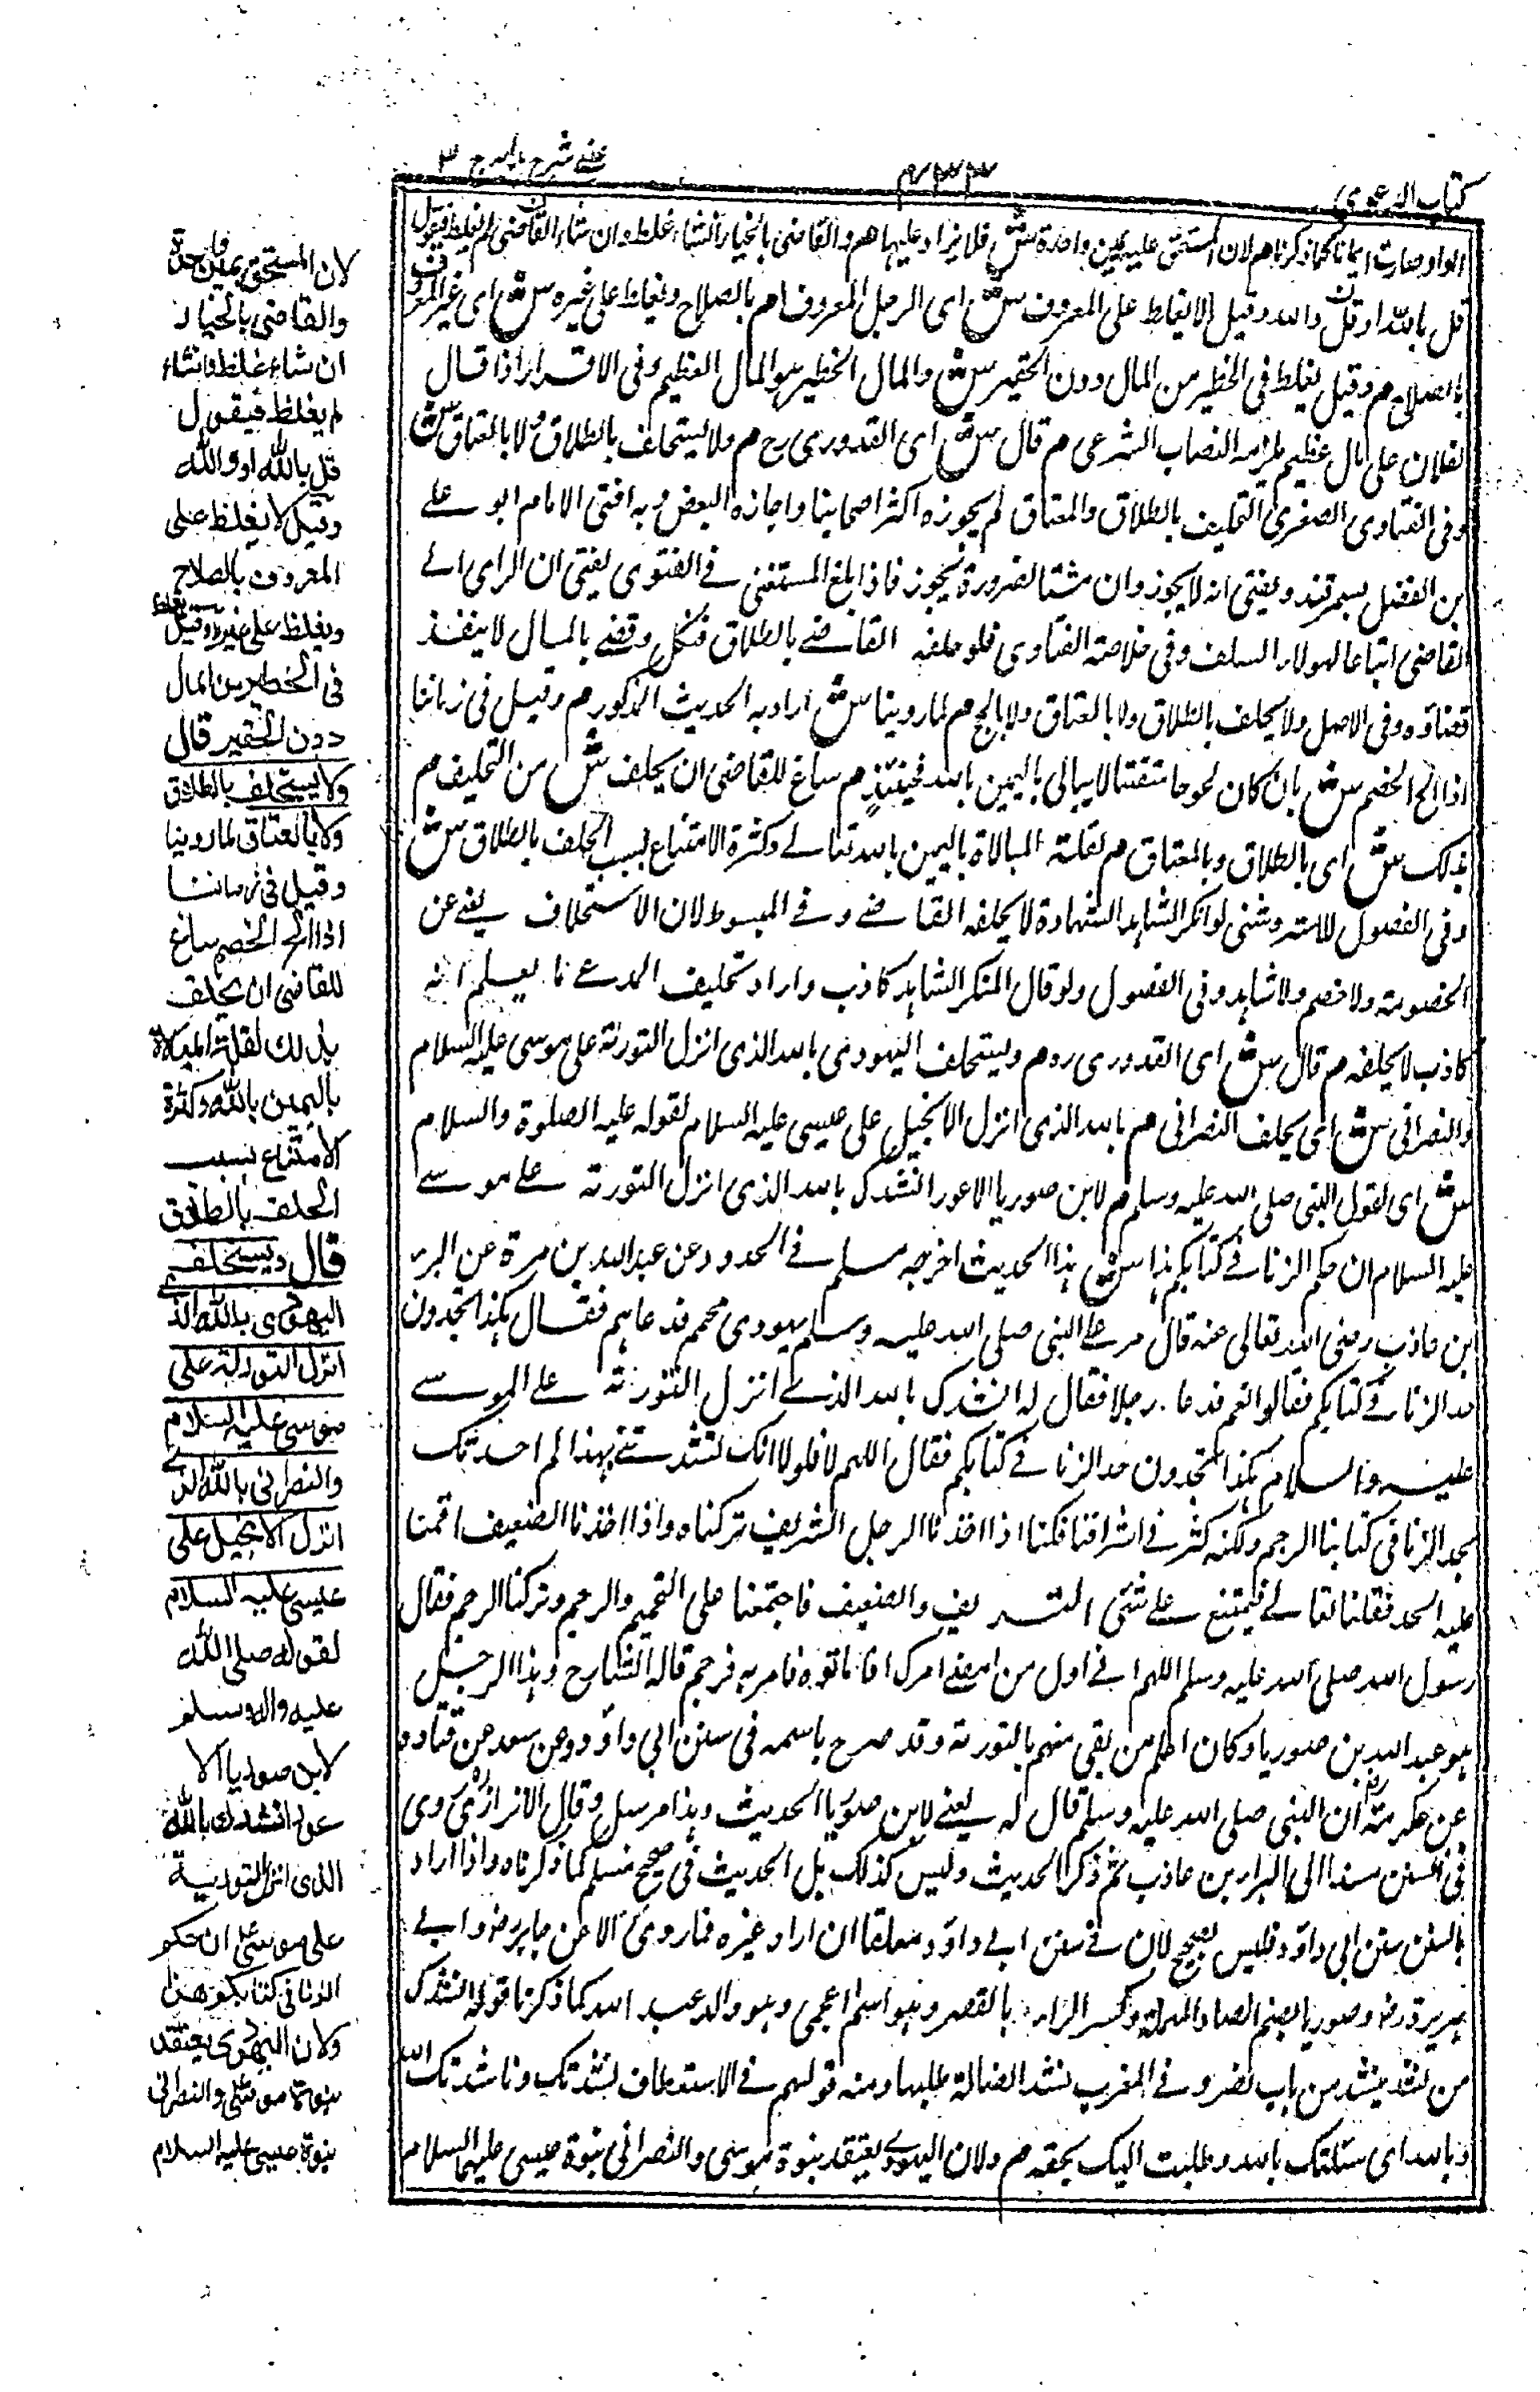 كتاب الدعوى
٤٣٣
عينى شرح هداية ج ٣
الواو صارت ايمانا كما ذكرنا هم لان المستحق عليه يمين واحدة ش فلا يزاد عليها هم والقاضى بالخيار ان شاء غلظ وان شاء القاضى لم يغلظ فيقول
قل بالله او قل والله وقيل لا يغلظ على المعروف ش اى الرجل المعروف م بالصلاح ويغلظ على غيره ش اى غير المعروف
بالصلاح م وقيل يغلظ فى الخطير من المال دون الحقير ش والمال الخطير هو المال العظيم وفى الاقرار اذا قال
لفلان على مال عظيم يلزمه النصاب الشرعى م قال ش اى القدورى رح م ولا يستحلف بالطلاق ولا بالعتاق ش
وفى الفتاوى الصغرى التحليف بالطلاق والعتاق لم يجوزه اكثر اصحابنا واجازه البعض وبه افتى الامام ابو على
بن الفضل بسمرقند ويفتى انه لا يجوز وان مست الضرورة يجوز فاذا بلغ المستفتى فى الفتوى يفتى ان الراى الى
القاضى اتباعا لهولاء السلف وفى خلاصة الفتاوى فلو حلفه القاضى بالطلاق فنكل وقضى بالمال لا ينفذ
قضاؤه وفى الاصل ولا يحلف بالطلاق ولا بالعتاق ولا بالحج م لما روينا ش اراد به الحديث المذكور م وقيل فى زماننا
اذا الح الخصم ش بان كان لحوحا متعنتا لا يبالى باليمين بالله فحينئذ م ساغ للقاضى ان يحلف ش من التحليف م
بذلك ش اى بالطلاق وبالعتاق م لقلة المبالاة باليمين بالله تعالى وكثرة الامتناع بسبب الحلف بالطلاق ش
وفى الفصول للاستروشنى لو انكر الشاهد الشهادة لا يحلفه القاضى وفى المبسوط لان الاستحلاف يفى عن
الخصومة ولا خصم ولا شاهد وفى الفصول ولو قال المنكر الشاهد كاذب واراد تحليف المدعى ما يعلم انه
كاذب لا يحلفه م قال ش اى القدورى رح م ويستحلف اليهودى بالله الذى انزل التورية على موسى عليه السلام
والنصرانى ش اى يحلف النصرانى م بالله الذى انزل الانجيل على عيسى عليه السلام لقوله عليه الصلوة والسلام
ش اى لقول النبى صلى الله عليه وسلم م لابن صوريا الاعور انشدك بالله الذى انزل التورية على موسى
عليه السلام ان حكم الزنا فى كتابكم هذا ش هذا الحديث اخرجه مسلم فى الحدود عن عبد الله بن مرة عن البراء
ابن عاذب رضى الله تعالى عنه قال مر على النبى صلى الله عليه وسلم يهودى محمم فدعاهم فقال هكذا تجدون
حد الزنا فى كتابكم فقالوا نعم فدعا رجلا فقال له انشدك بالله الذى انزل التورية على الموسى
عليه والسلام هكذا تجدون حد الزنا فى كتابكم فقال اللهم لا فلولا انك نشدتنى بهذا لم احدثك
نجد الزنا فى كتابنا الرجم ولكنه كثر فى اشرافنا فكنا اذا اخذنا الرجل الشريف تركناه واذا اخذنا الضعيف اقمنا
عليه الحد فقلنا تعالى فليجتمع على شئ الشريف والضعيف فاجتمعنا على التحميم والرجم وتركنا الرجم فقال
رسول الله صلى الله عليه وسلم اللهم انى اول من احيى امرك اذ اماتوه فامر به فرجم قاله الشارح وهذا الرجل
هو عبد الله بن صوريا وكان اعلم من بقى منهم بالتورية وقد صرح باسمه فى سنن ابى داؤد وعن سعد عن قتادة
عن عكرمة ان النبى صلى الله عليه وسلم قال له يعنى لابن صوريا الحديث وهذا مرسل وقال الاترازى روى
فى السنن مسندا الى البراء بن عاذب ثم ذكر الحديث وليس كذلك بل الحديث فى صحيح مسلم كما ذكرناه واذا اراد
بالسنن سنن ابى داؤد فليس بصحيح لان فى سنن ابى داؤد معلقا ان اراد غيره فما روى الا عن جابر رض وابى
هريرة رض وصوريا بضم الصاد المهملة وكسر الراء بالقصر وهو اسم اعجمى وهو والد عبد الله كما ذكرنا قوله انشدك
من نشد ينشد من باب نصر وفى المغرب نشد الضالة طلبها ومنه قولهم فى الاستعطاف نشدتك وناشدتك الله
وبالله اى سئلتك بالله وطلبت اليك بحقه م ولان اليهودى يعتقد بنبوة موسى والنصرانى نبوة عيسى عليهما السلام
لان المستحق يمين واحدة
والقاضى بالخيار
ان شاء غلظ وانشاء
لم يغلظ فيقول
قل بالله او والله
وقيل لا يغلظ على
المعروف بالصلاح
ويغلظ على غيره وقيل يغلظ
فى الخطير من المال
دون الحقير قال
ولا يستحلف بالطلاق
ولا بالعتاق لما روينا
وقيل فى زماننا
اذا الح الخصم ساغ
للقاضى ان يحلف
بذلك لقلة المبالاة
باليمين بالله وكثرة
الامتناع بسبب
الحلف بالطلاق
قال ويستحلف
اليهودى بالله الذى
انزل التورية على
موسى عليه السلام
والنصرانى بالله الذى
انزل الانجيل على
عيسى عليه السلام
لقوله صلى الله
عليه واله وسلم
لابن صوريا الا
عور انشدك بالله
الذى انزل التورية
على موسى ان حكم
الزنا فى كتابكم هذا
ولان اليهودى يعتقد
بنبوة موسى والنصرانى
بنبوة عيسى عليه السلام